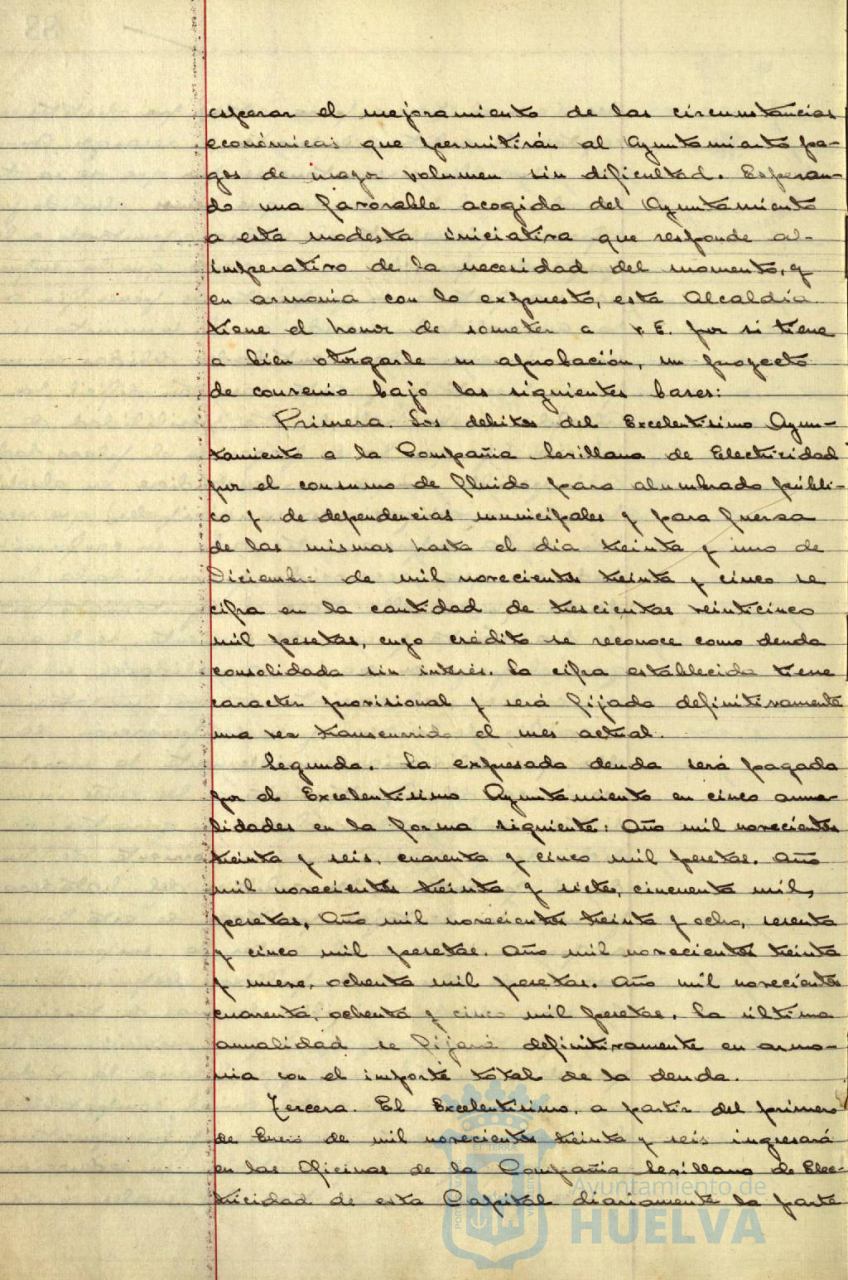 esperar el mejoramiento de las circunstancias
económicas que permitirán al Ayuntamiento pa-
gos de mayor volumen sin dificultad. Esperan-
do una favorable acogida del Ayuntamiento
a esta modesta iniciativa que responde al-
imperativo de la necesidad del momento, y
en armonia con lo expuesto, esta Alcaldía
tiene el honor de someter a V.E. por si tiene
a bien otorgarle su aprobación, un proyecto
de convenio bajo las siguientes bases:
Primera. Los debitos del Excelentisimo Ayun-
tamiento a la Compañia Sevillana de Electricidad
por el consumo de fluido para alumbrado públi-
co y de dependencias municipales y para fuerza
de las mismas hasta el dia treinta y uno de
Diciembre de mil novecientos treinta y cinco se
cifra en la cantidad de trescientas veinticinco
mil pesetas, cuyo crédito se reconoce como deuda
consolidada sin interés. La cifra establecida tiene
caracter provisional y será fijada definitivamente
una vez transcurrido el mes actual.
Segunda. La expresada deuda será pagada
por el Excelentisimo Ayuntamiento en cinco anua-
lidades en la forma siguiente: Año mil novecientos
treinta y seis, cuarenta y cinco mil pesetas. Año
mil novecientos treinta y siete, cincuenta mil,
pesetas, Año mil novecientos treinta y ocho, sesenta
y cinco mil pesetas. Año mil novecientos treinta
y nueve, ochenta mil pesetas. Año mil novecientos
cuarenta, ochenta y cinco mil pesetas. La última
anualidad se fijará definitivamente en armo-
nia con el importe total de la deuda.
Tercera. El Excelentisimo, a partir del primero
de Enero de mil novecientos treinta y seis ingresará
en las Oficinas de la Compañia Sevillana de Elec-
tricidad de esta Capital diariamente la parte
Ayuntamiento de
HUELVA